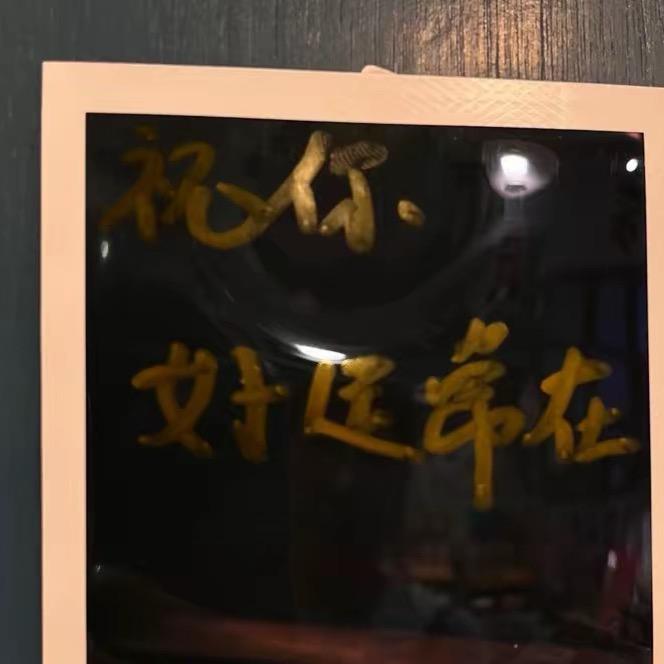 祝你
好运常在